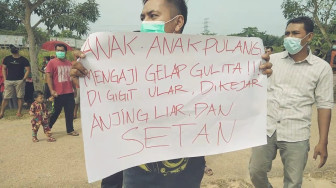 ANAK-ANAK PULANG
MENGAJI GELAP GULITA !!
DI GIGIT ULAR, DIKEJAR
ANJING LIAR DAN
SETAN